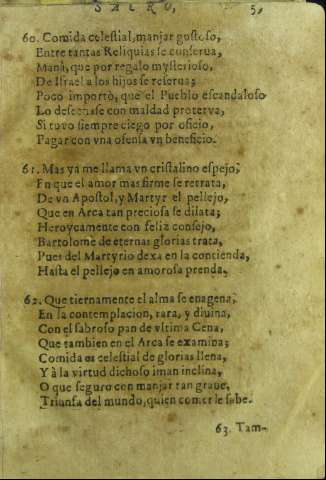 SACRO, 5,
60. Comida celestial, manjar gustoso,
Entre tantas Reliquias se conserua,
Manà, que por regalo mysterioso,
De Israel a los hijos se reserua;
Poco importò, que el Pueblo escandaloso
Lo desease con maldad proterva,
Si tuvo siempre ciego por oficio,
Pagar con vna ofensa vn beneficio.
61. Mas ya me llama vn cristalino espejo,
En que el amor mas firme se retrata,
De vn Apostol, y Martyr el pellejo,
Que en Arca tan preciosa se dilata;
Heroycamente con feliz consejo,
Bartolome de eternas glorias trata,
Pues del Martyrio dexa en la contienda,
Hasta el pellejo en amorosa prenda.
62. Que tiernamente el alma se enagena,
En la contemplacion, rara, y diuina,
Con el sabroso pan de vltima Cena,
Que tambien en el Arca se examina;
Comida es celestial de glorias llena,
Y à la virtud dichoso iman inclina,
O que seguro con manjar tan graue,
Triunfa del mundo, quien comerle sabe.
63. Tam-